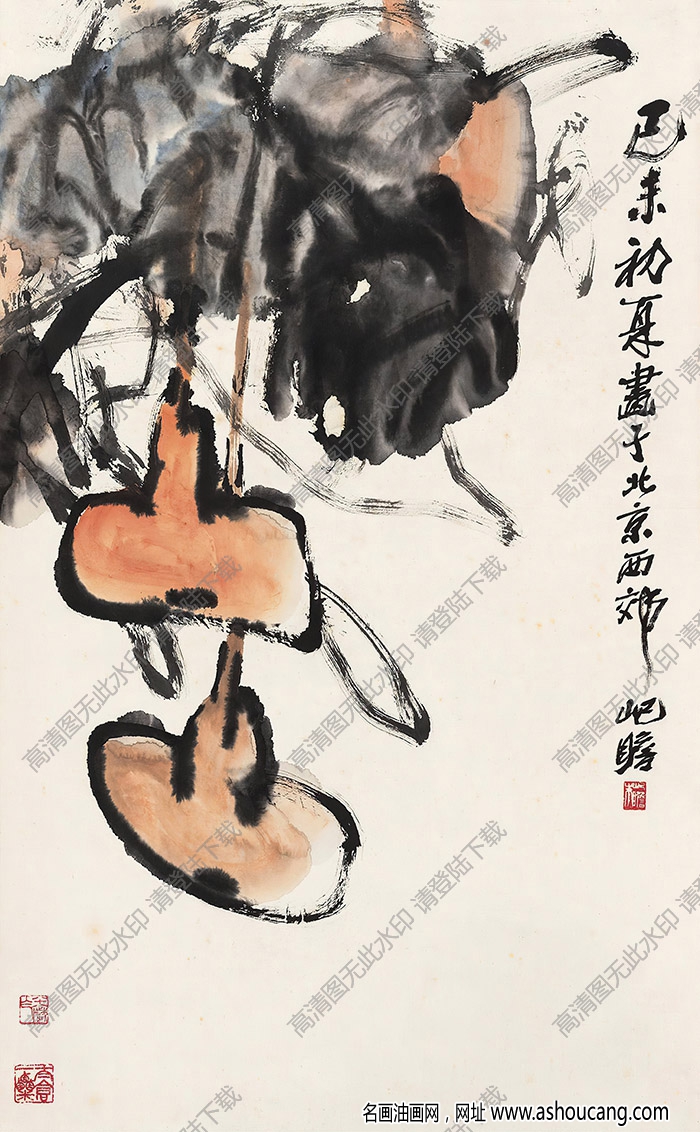 己未初夏畫于北京西郊
屺瞻
高清图无此水印 请登陆下载
名画油画网，网址 www.ashoucang.com